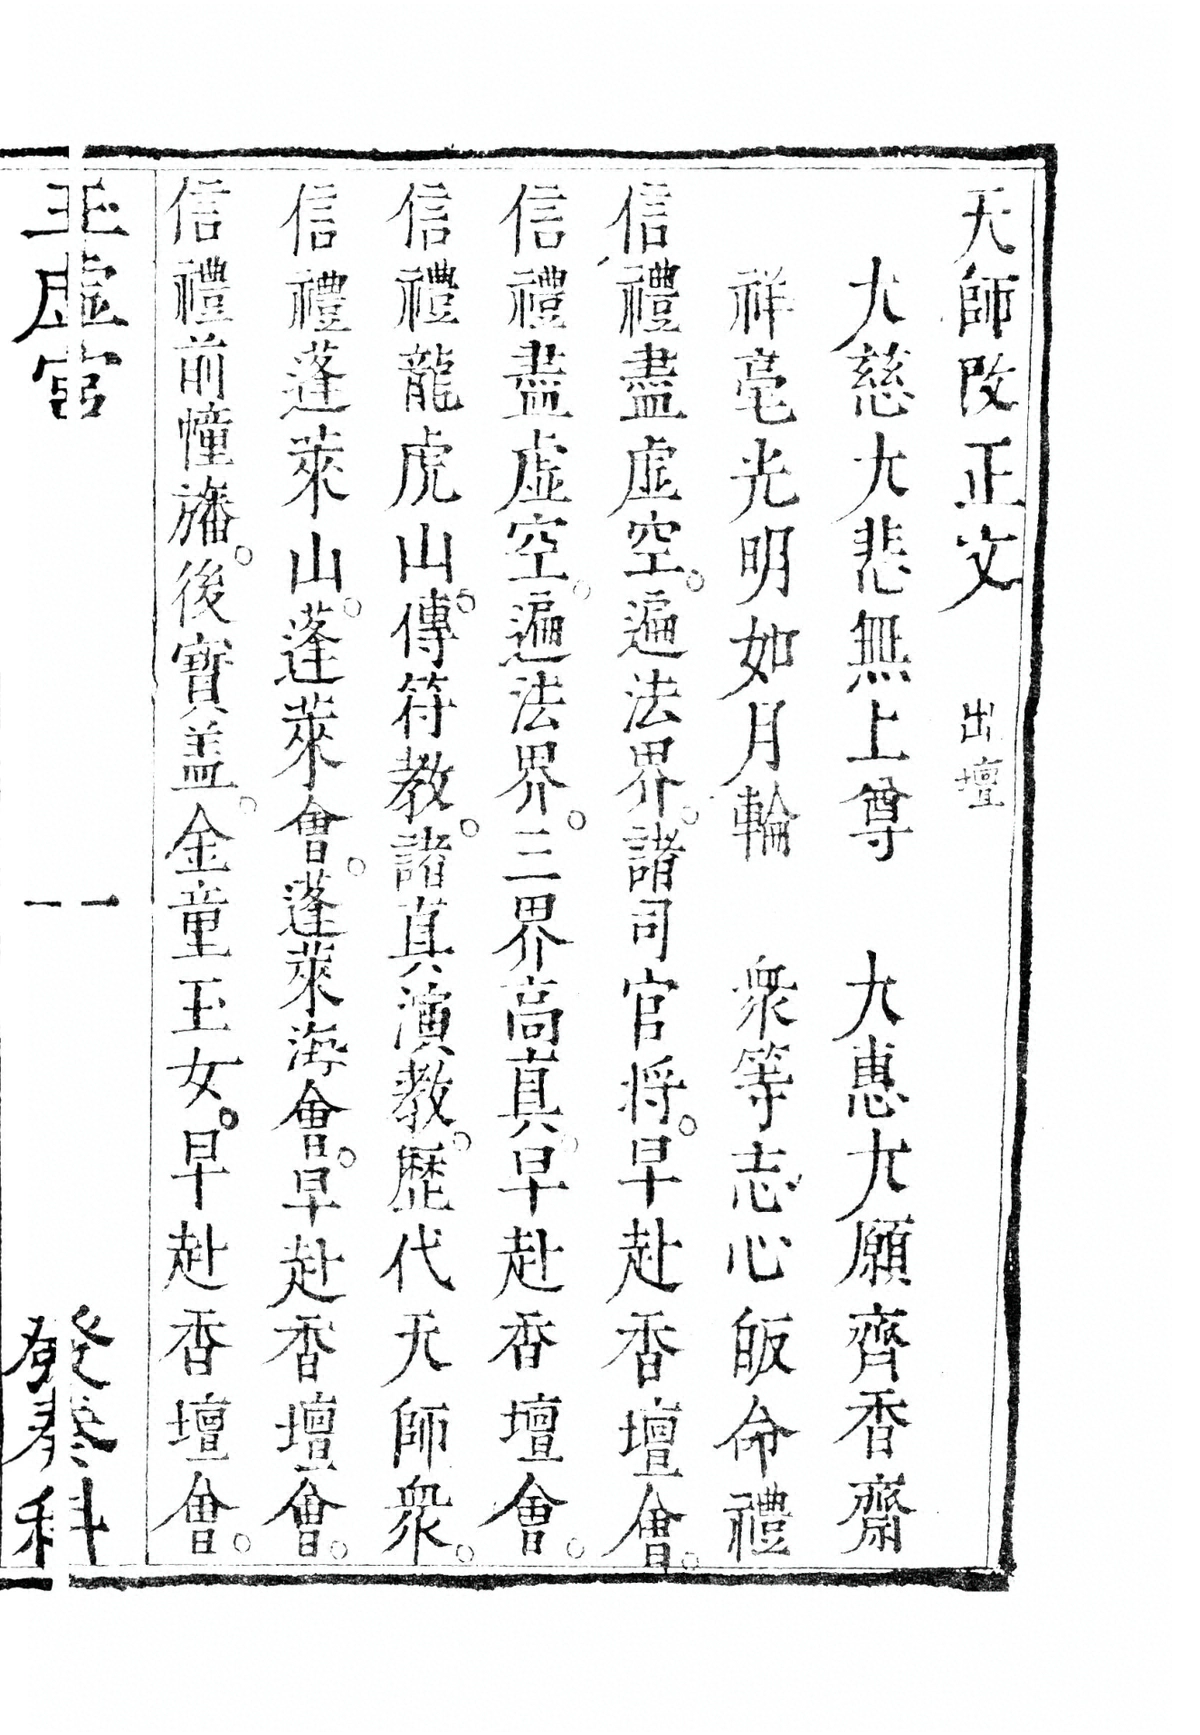 天師改正文　出壇
大慈大悲無上尊　大惠大願齊香齋
祥毫光明如月輪　衆等志心皈命禮
信禮盡虛空。遍法界。諸司官将。早赴香壇會。
信禮盡虛空。遍法界。三界高真。早赴香壇會。
信禮龍虎山。傳符教。諸真演教。歷代天師衆。
信禮蓬萊山。蓬萊會。蓬萊海會。早赴香壇會。
信禮前幢旛。後寶盖。金童玉女。早赴香壇會。
玉虛宮　一　發奏科